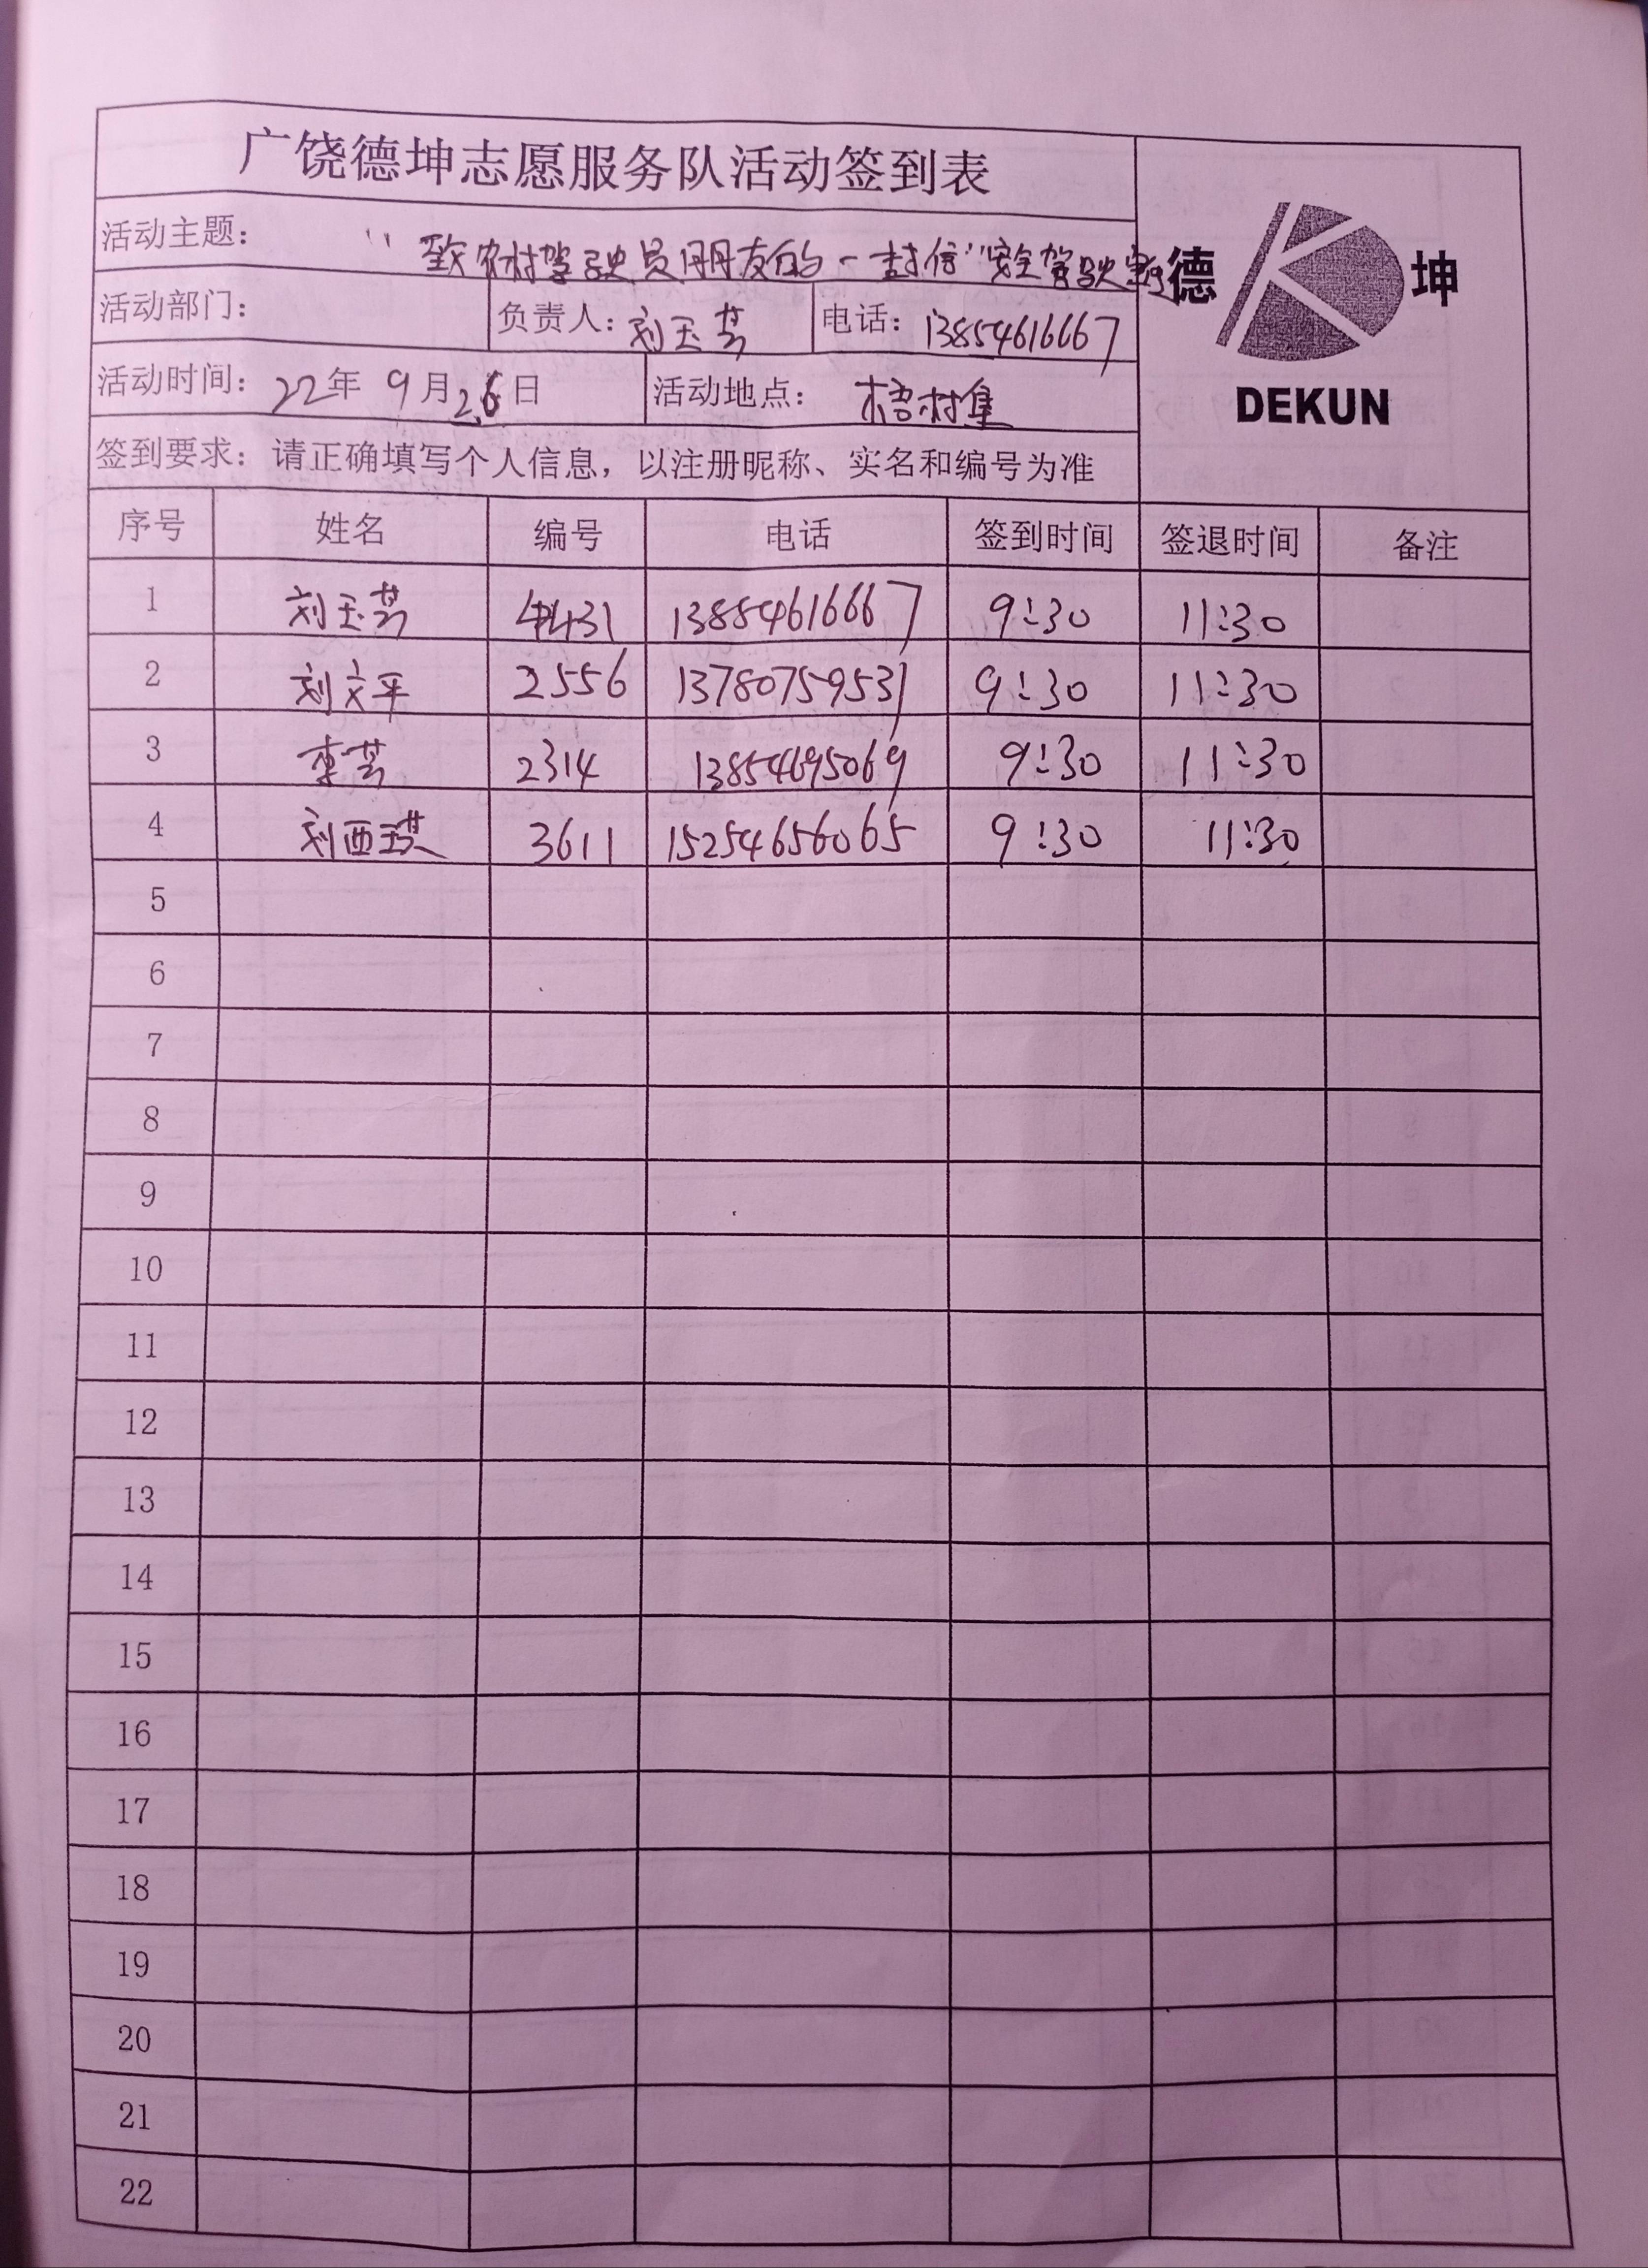 广饶德坤志愿服务队活动签到表
活动主题： "致农村驾驶员朋友的一封信"安全驾驶
德 坤
DEKUN
活动部门： 负责人：刘玉芸 电话：13854616667
活动时间：22年 9月26日 活动地点：梧村集
签到要求：请正确填写个人信息，以注册昵称、实名和编号为准
序号 姓名 编号 电话 签到时间 签退时间 备注
1 刘玉芸 4431 13854616667 9:30 11:30
2 刘文平 2556 13780759531 9:30 11:30
3 李芸 2314 13854695069 9:30 11:30
4 刘西琪 3611 15254656065 9:30 11:30
5
6
7
8
9
10
11
12
13
14
15
16
17
18
19
20
21
22